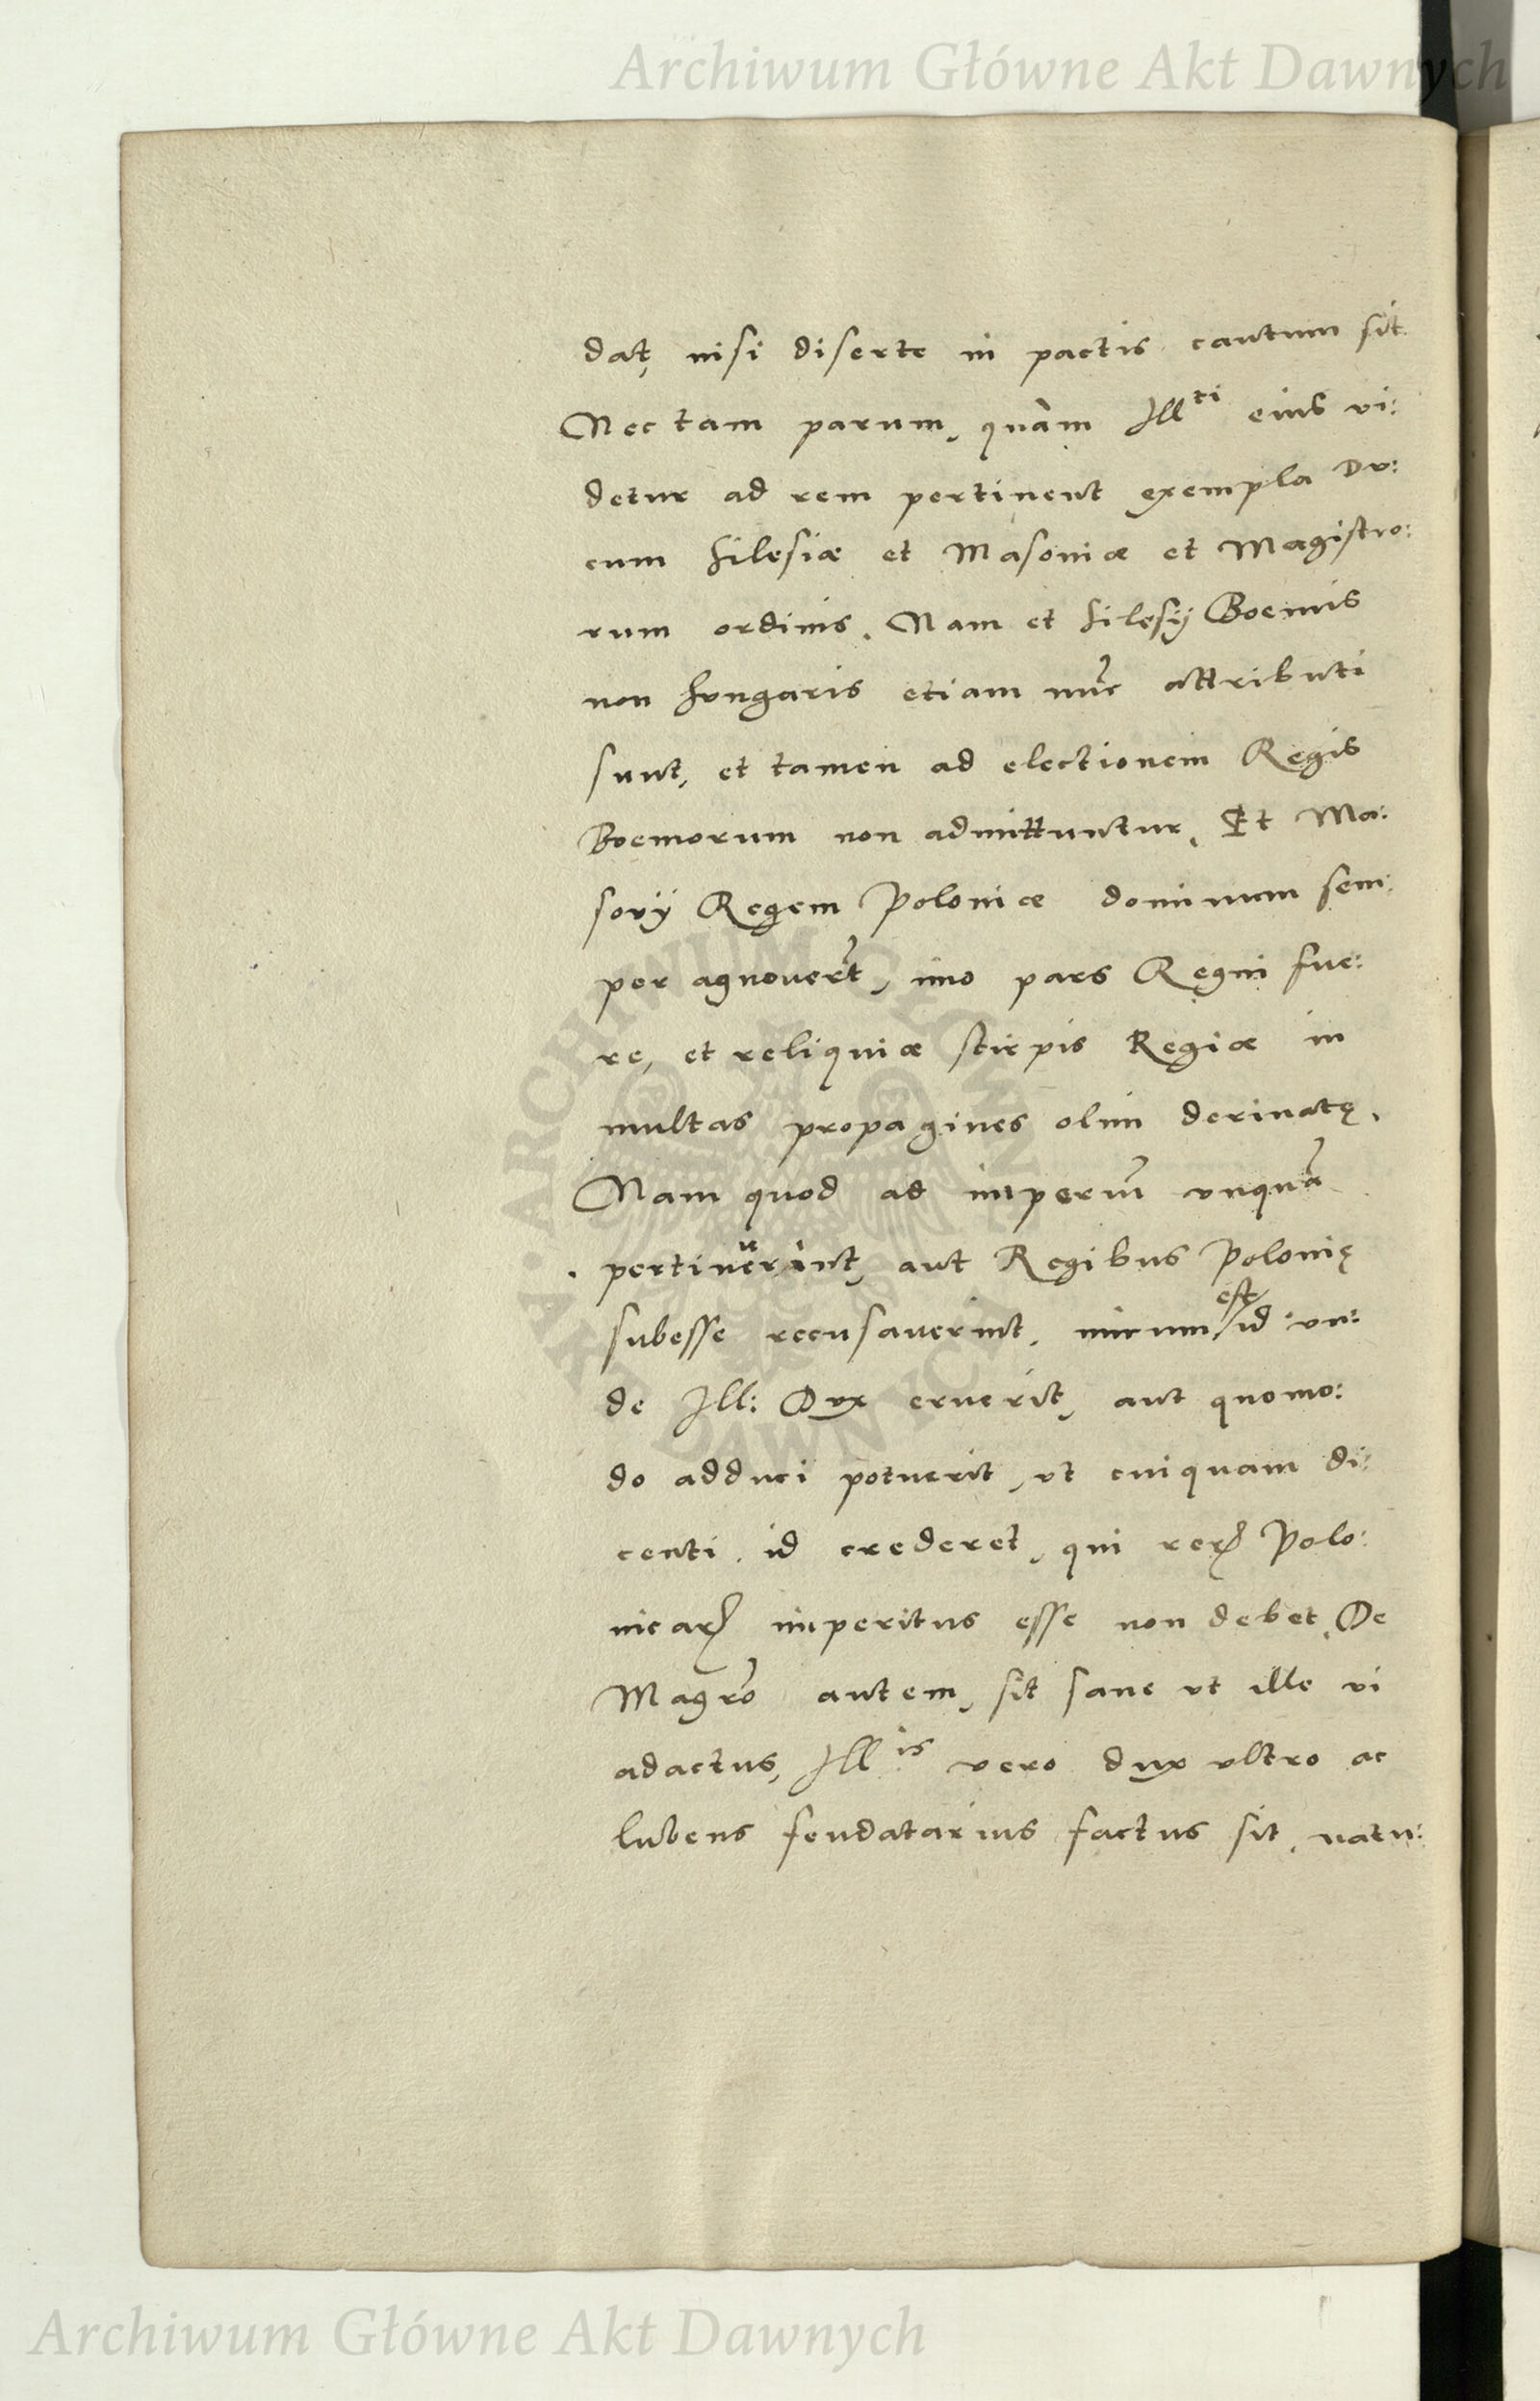 Archiwum Główne Akt Dawnych
dat, nisi diserte in pactis cautum sit.
Nec tam parum, quàm Ill^ti eius vi:
detur ad rem pertinent exempla Du:
cum Silesiæ et Masoviæ et Magistro:
rum ordinis. Nam et Silesij Boemis
non Hungaris etiam nũc attributi
sunt, et tamen ad electionem Regis
Boemorum non admittuntur. Et Ma:
sovij Regem Poloniæ dominum sem:
per agnouer̃t, imo pars Regni fue:
re, et reliquiæ stirpis Regiæ in
multas propagines olim deriuatę.
Nam quod ad imperiũ vnquã
pertinuerint, aut Regibus Polonię
subesse recusauerint, mirum est id vn:
de Ill: Dux eruerit, aut quomo:
do adduci potuerit, vt cuiquam di:
centi id crederet, qui rerꝝ Polo:
nicarꝝ imperitus esse non debet. De
Magr̃o autem, sit sane vt ille vi
adactus, Ill^is vero dux vltro ac
lubens feudatarius factus sit, natu:
ARCHIWUM GŁÓWNE AKT DAWNYCH
Archiwum Główne Akt Dawnych